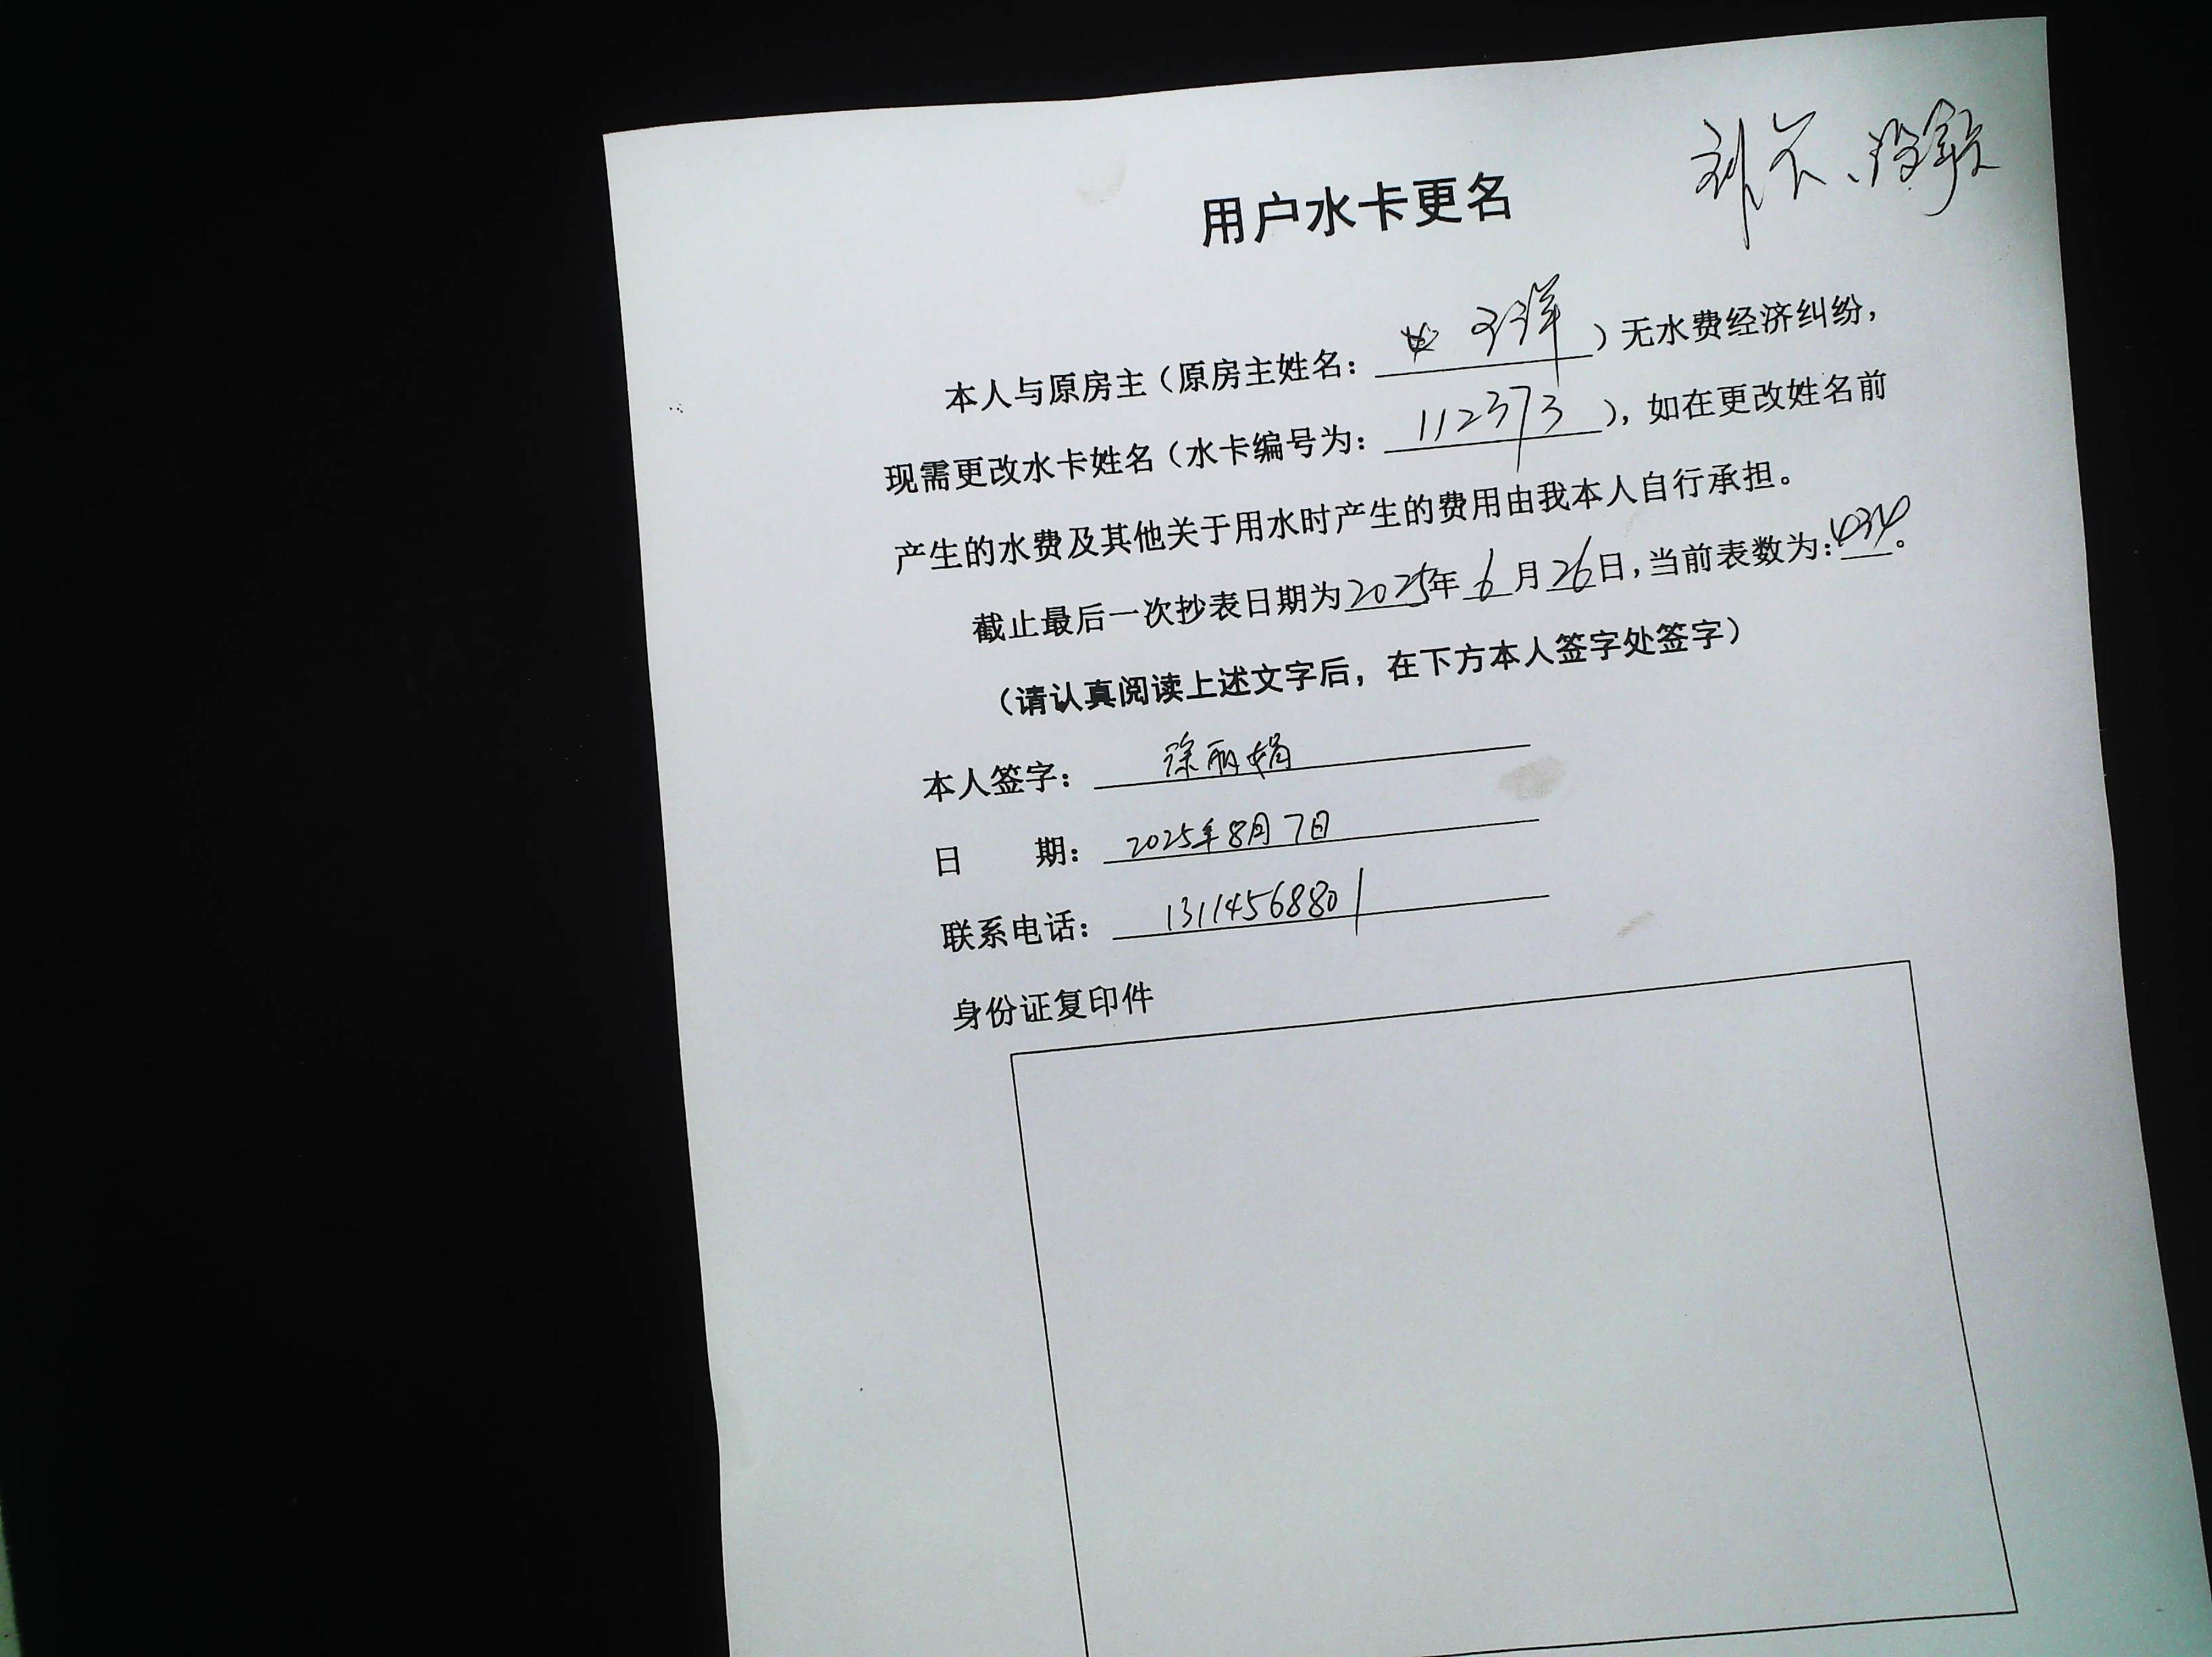 用户水卡更名
本人与原房主（原房主姓名：）无水费经济纠纷，
现需更改水卡姓名（水卡编号为：112373），如在更改姓名前
产生的水费及其他关于用水时产生的费用由我本人自行承担。
截止最后一次抄表日期为2025年6月26日,当前表数为:434。
（请认真阅读上述文字后，在下方本人签字处签字）
本人签字：徐丽娟
日 期：2025年8月7日
联系电话：13114568801
身份证复印件